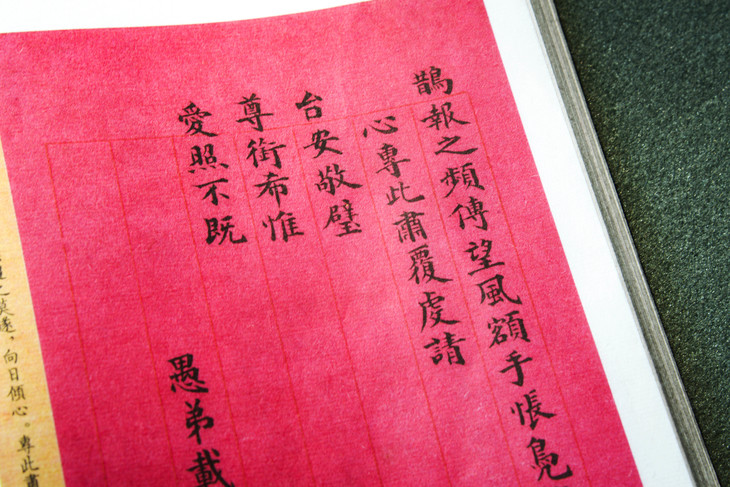 鵲報之頻傳望風額手悵鳧
心專此肅覆虔請
台安敬璧
尊銜希惟
愛照不既
愚弟載
之莫遂，向日傾心。專此肅